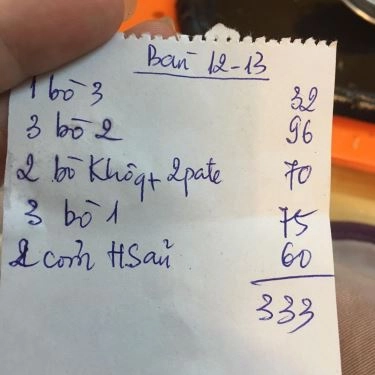 Bàn 12-13
1 bò 3 32
3 bò 2 96
2 bò Khôg + 2 pate 70
3 bò 1 75
2 cơm HSản 60
333